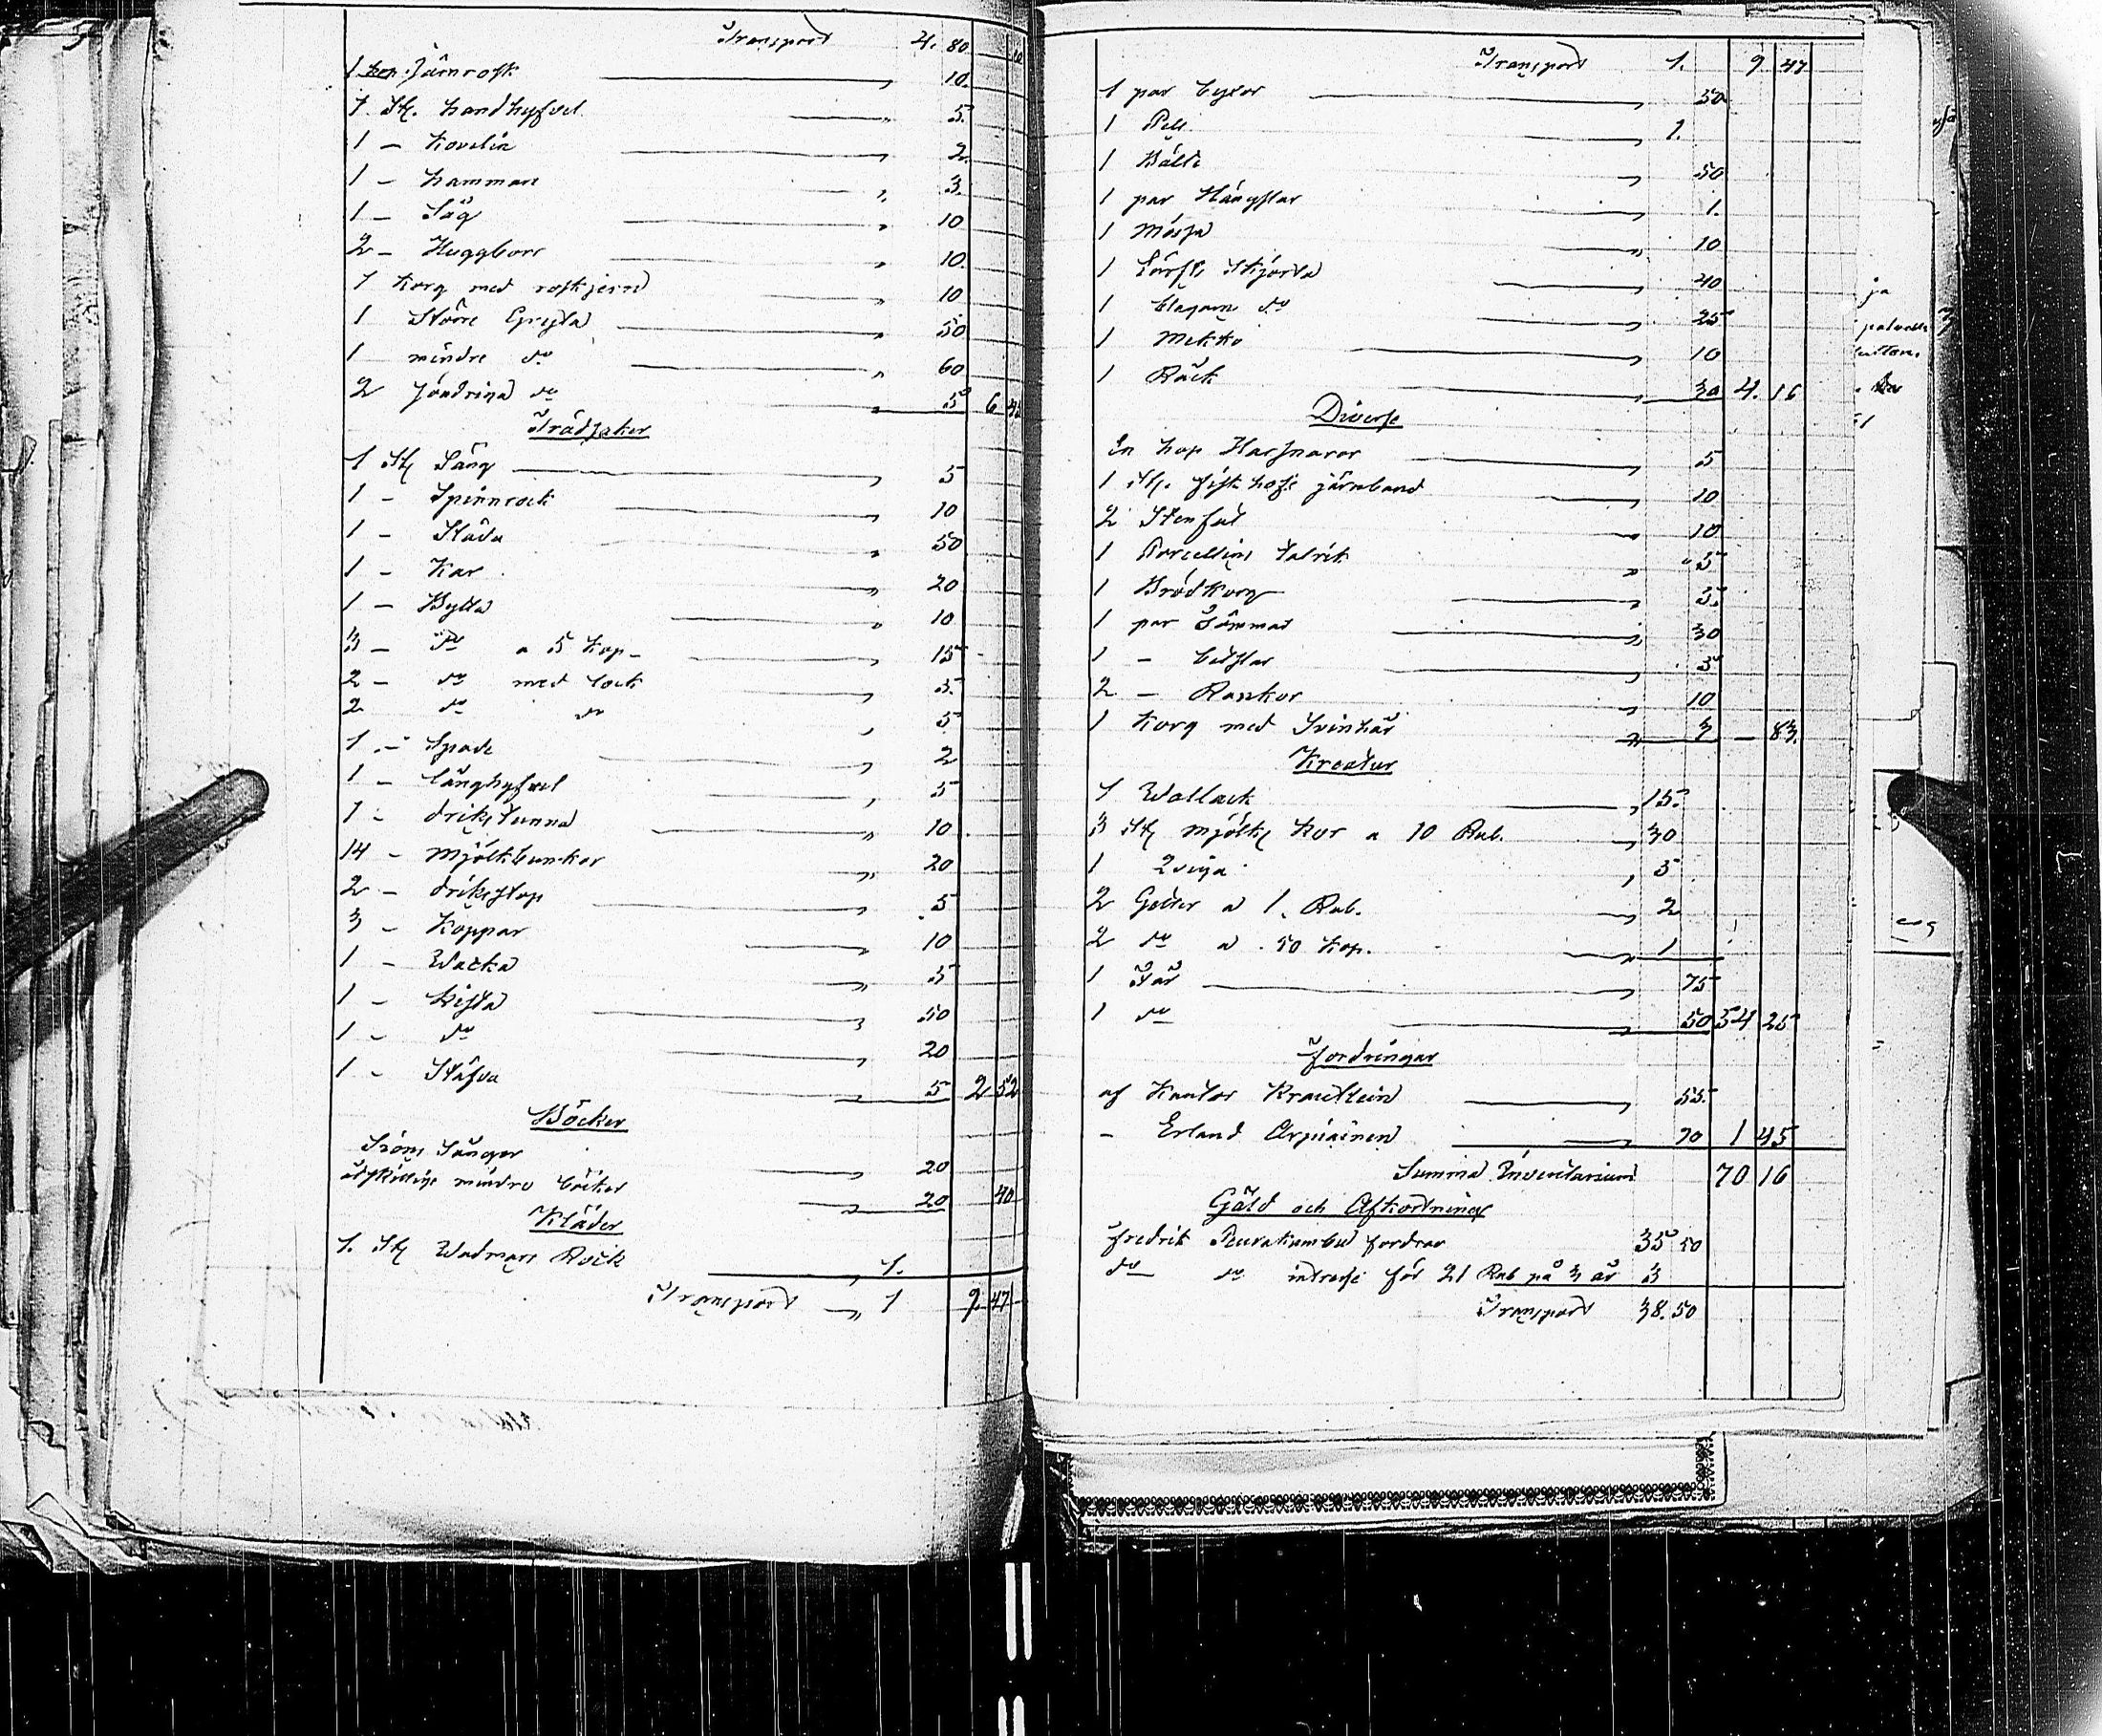 Transport 4. 80
1 hop Järnrosk " 10.
1 St. handhyfvel " 5.
1 - Navelin " 2.
1 - hammare " 3.
1 - Såg " 10
2 - Huggborr " 10.
1 Korg med roskjern " 10
1 Större Gryta " 50
1 mindre do " 60
2 söndriga do " 5 6
Trädsaker
1 St Säng " 5
1 - Spinnrock " 10
1 - Släda " 50
1 - Kar " 20
1 - Bytta " 10
3 - do a 5 kop - " 15
2 - do med lock " 5
2 do do " 5
1 - Spade " 2
1 - långhyfvel " 5
1 - driks tunna " 10
14 - Mjölkbunkar " 20
2 - drikstop " 5
3 - Koppar " 10
1 - Wacka " 5
1 - kista " 50
1 - do " 20
1 - Stäfva " 5 2 52
Böcker
Sions Sånger " 20
åtskillige mindre böcker " 20 40
Kläder
1. St Wadmars Rock " 1.
Transport " 1 9 47
Transport 1. 9 47
1 par byxor " 50
1 Pels " 1.
1 Bälte " 50
1 par Handskar " 1.
1 Mössa " 10
1 Lärfts Skjorta " 40
1 blagarn do " 25
1 Mekko " 10
1 Råck 30 4. 16
Diverse
En hop Harfnaror " 5
1 St. järnband " 10
2 Stenfat " 10
1 Porcellins talrik " 5
1 Brödkorg " 5
1 par Tömmar " 30
1 - betslar " 5
2 - Rankor " 10
1 Korg med Svinhår " 3 - 83.
Kreatur
1 Wallack " 15.
3 St mjölk kor a 10 Rub. " 30
1 Qviga " 5
2 Getter a 1. Rub. " 2
2 do a 50 kop. " 1
1 Får " 75
1 do " 50 54 25
Fordringar
af Kantor Krautlein " 55.
- Erland Arpiainen " 70 1 45
Summa Inventarium 70 16
Gäld och Afkortning
Fredrik Peurakumbu fordrar 35 50
do do intresse för 21 Rub på 3 år 3
Transport 38. 50